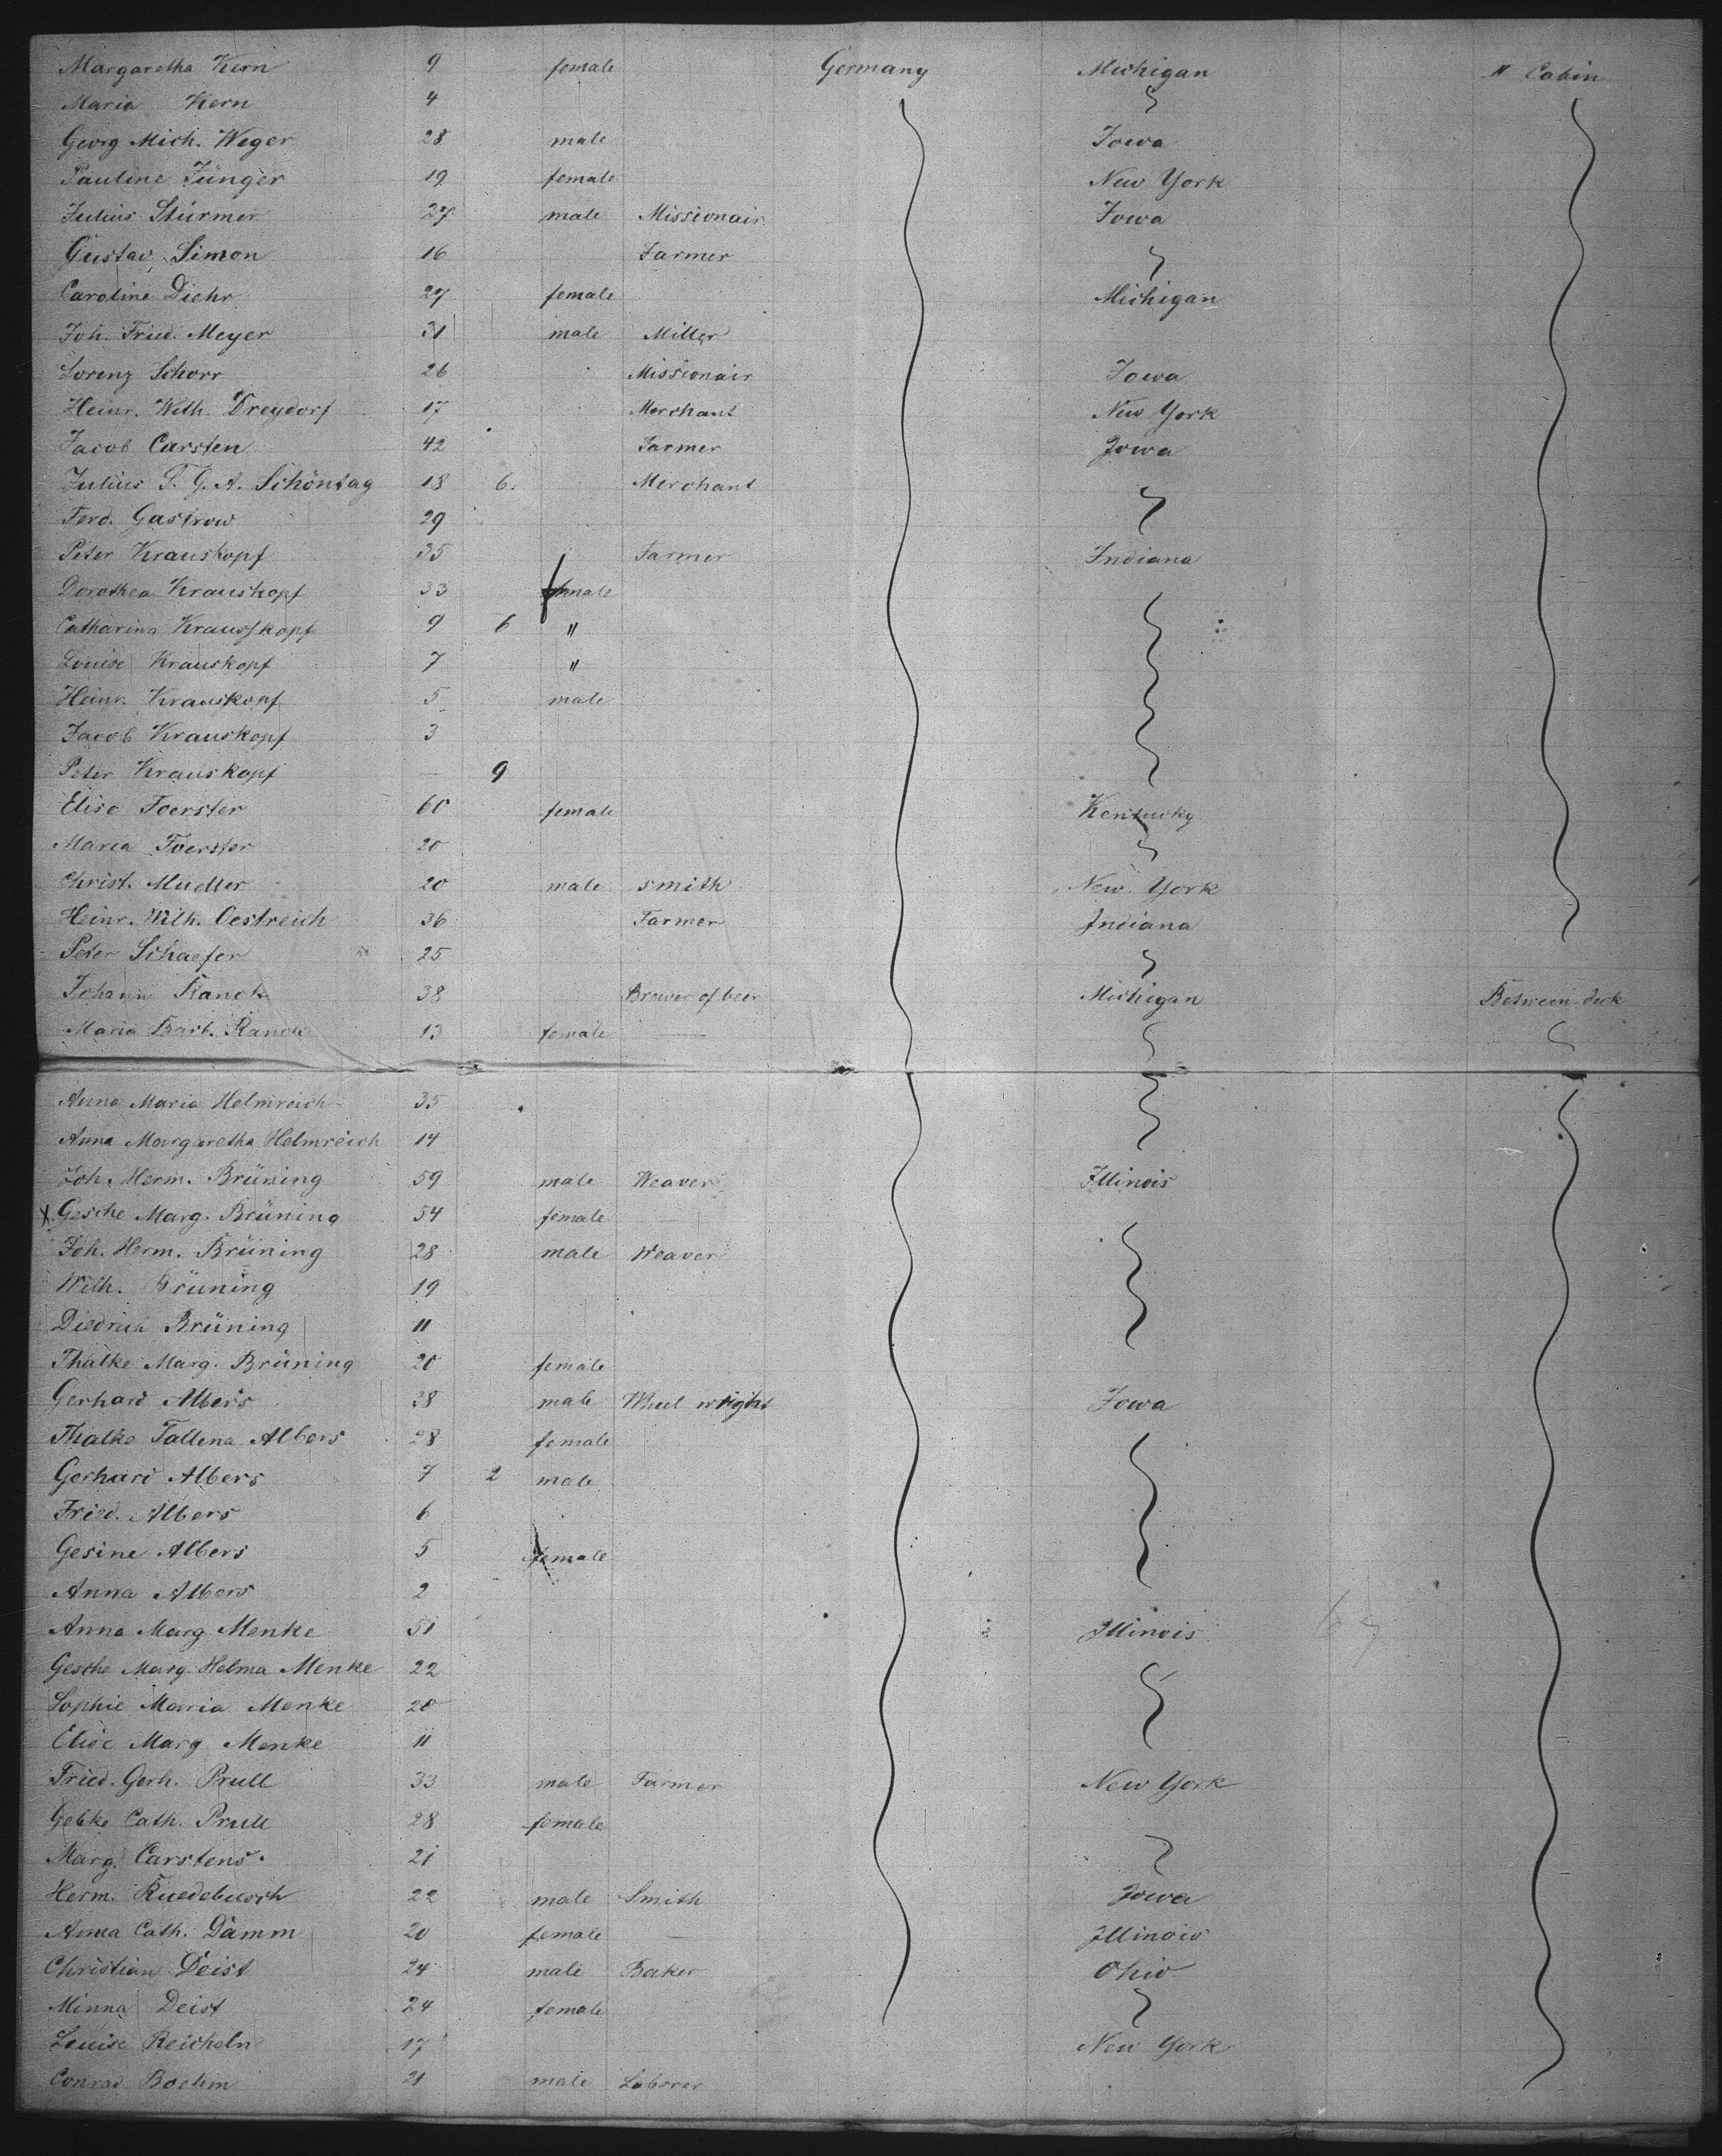 Margaretha Kern 9 female Germany Michigan II Cabin
Maria Kern 4
Georg Mich. Weger 28 male Iowa
Pauline Jünger 19 female New York
Julius Stürmer 27 male Missionair Iowa
Gustav Simon 16 Farmer
Caroline Diehr 27 female Michigan
Joh. Fried. Meyer 31 male Miller
Lorenz Schorr 26 Missionair Iowa
Heinr. Wilh. Dreydorf 17 Merchant New York
Jacob Carsten 42 Farmer Iowa
Julius T. G. A. Schöntag 18 6. Merchant
Ferd. Gastrow 29
Peter Krauskopf 35 Farmer Indiana
Dorothea Krauskopf 33 female
Catharina Krausskopf 9 6 "
Louise Krauskopf 7 "
Heinr. Krauskopf 5 male
Jacob Krauskopf 3
Peter Krauskopf — 9
Elise Foerster 60 female Kentucky
Maria Foerster 20
Christ. Mueller 20 male smith New York
Heinr. Wilh. Oestreich 36 Farmer Indiana
Peter Schaefer 25
Johann Ranck 38 Brewer of beer Michigan Between-deck
Maria Barb. Ranck 13 female —
Anna Maria Helmreich 35
Anna Margaretha Helmreich 14
Joh. Herm. Brüning 59 male Weaver Illinois
X Gesche Marg. Brüning 54 female
Joh. Herm. Brüning 28 male Weaver
Wilh. Brüning 19
Diedrich Brüning 11
Thalke Marg. Brüning 20 female
Gerhard Albers 38 male Wheel wright Iowa
Thalke Tallena Albers 28 female
Gerhard Albers 7 2 male
Fried. Albers 6
Gesine Albers 5 female
Anna Albers 2
Anna Marg Menke 51 Illinois
Gesche Marg. Helma Menke 22
Sophie Maria Menke 20
Elise Marg Menke 11
Fried. Gerh. Prull 33 male Farmer New York
Gebke Cath. Prull 28 female
Marg. Carstens. 21
Herm. Ruedebusch 22 male Smith Iowa
Anna Cath. Damm 20 female — Illinois
Christian Deist 24 male Baker Ohio
Minna Deist 24 female
Louise Reicheln 17 New York
Conrad Boehm 21 male Laborer